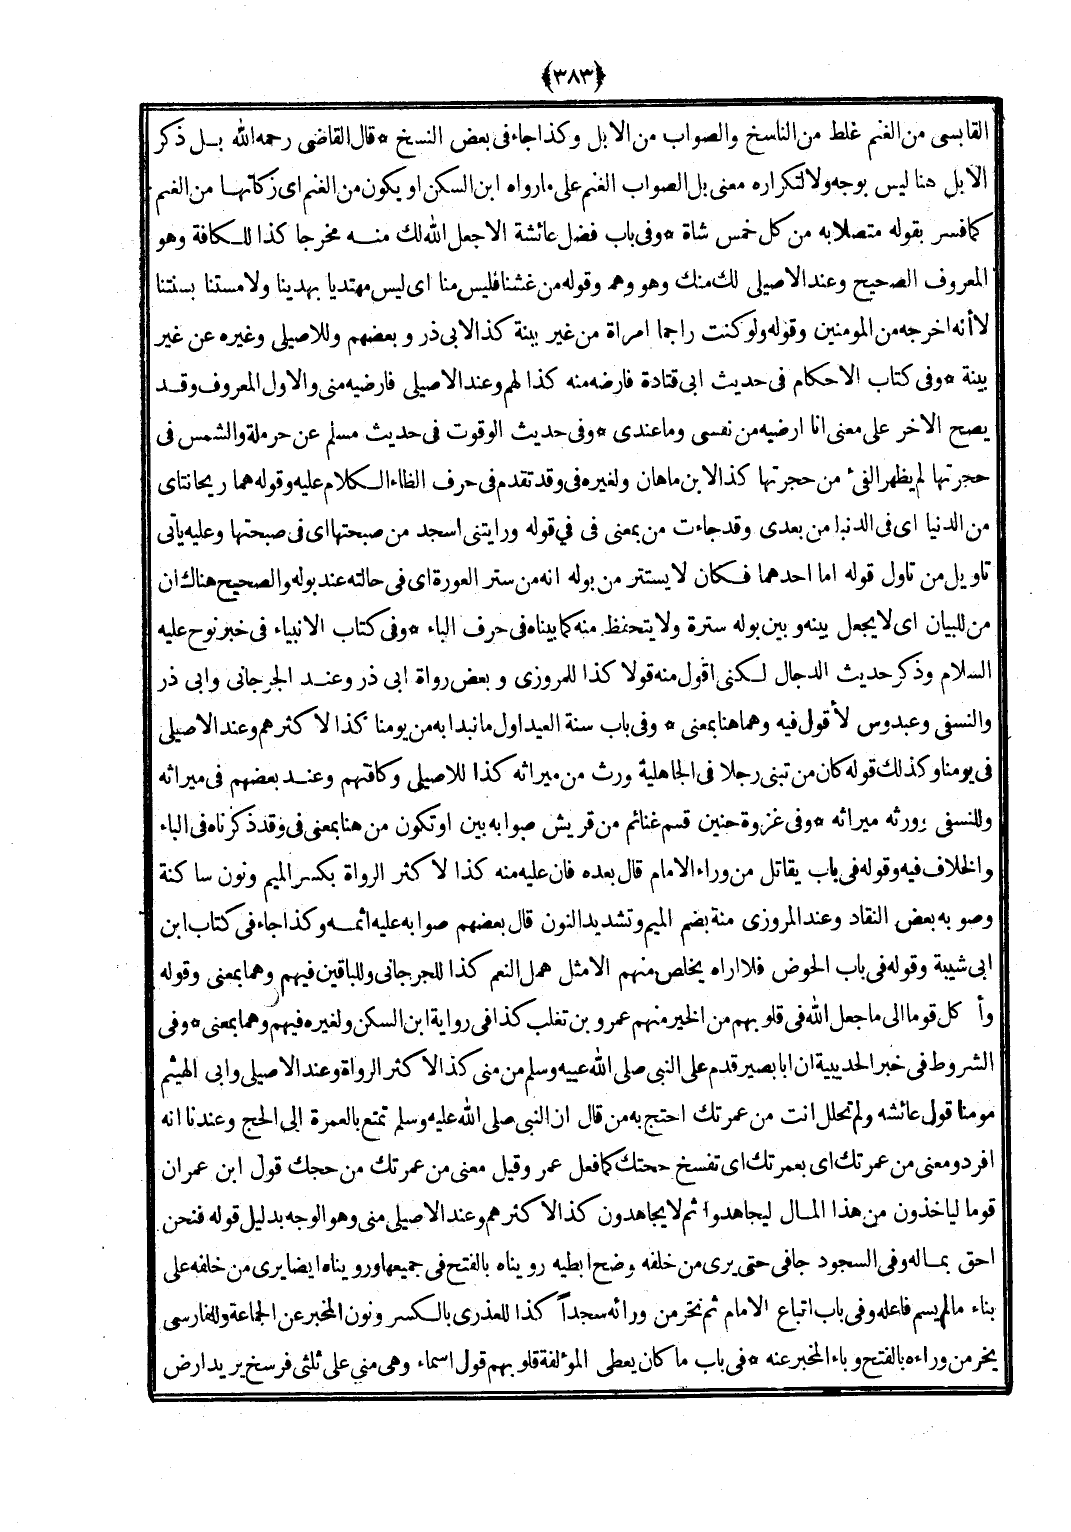 ﴿٣٨٣﴾
القابسى من الغنم غلط من الناسخ والصواب من الابل وكذا جاء فى بعض النسخ * قال القاضى رحمه الله بل ذكر
الابل هنا ليس بوجه ولا لتكراره معنى بل الصواب الغنم على مارواه ابن السكن او يكون من الغنم اى زكاتها من الغنم
كما فسر بقوله متصلا به من كل خمس شاة * وفى باب فضل عائشة الا جعل الله لك منه مخرجا كذا للكافة وهو
المعروف الصحيح وعند الاصيلى لك منك وهو وهم وقوله من غشنا فليس منا اى ليس مهتديا بهدينا ولا مستنا بسنتنا
لا أنه اخرجه من المومنين وقوله ولو كنت راجما امراة من غير بينة كذا لابى ذر وبعضهم وللاصيلى وغيره عن غير
بينة * وفى كتاب الاحكام فى حديث ابى قتادة فارضه منه كذا لهم وعند الاصيلى فارضيه منى والاول المعروف وقد
يصح الاخر على معنى انا ارضيه من نفسى وما عندى * وفى حديث الوقوت فى حديث مسلم عن حرملة والشمس فى
حجرتها لم يظهر الفىْ من حجرتها كذا لابن ماهان ولغيره فى وقد تقدم فى حرف الظاء الكلام عليه وقوله هما ريحانتاى
من الدنيا اى فى الدنيا من بعدى وقد جاءت من بمعنى فى في قوله ورايتنى اسجد من صبحتها اى فى صبحتها وعليه ياتى
تاويل من تاول قوله اما احدهما فكان لا يستتر من بوله انه من ستر العورة اى فى حالته عند بوله والصحيح هناك ان
من للبيان اى لا يجعل بينه وبين بوله سترة ولا يتحفظ منه كما بيناه فى حرف الباء * وفى كتاب الانبياء فى خبر نوح عليه
السلام وذكر حديث الدجال لكنى اقول منه قولا كذا للمروزى وبعض رواة ابى ذر وعند الجرجانى وابى ذر
والنسفى وعبدوس لأقول فيه وهما هنا بمعنى * وفى باب سنة العيد اول ما نبدا به من يومنا كذا لاكثرهم وعند الاصيلى
فى يومنا وكذلك قوله كان من تبنى رجلا فى الجاهلية ورث من ميراثه كذا للاصيلى وكافتهم وعند بعضهم فى ميراثه
وللنسفى ورثه ميراثه * وفى غزوة حنين قسم غنائم من قريش صوابه بين او تكون من هنا بمعنى فى وقد ذكرناه فى الباء
والخلاف فيه وقوله فى باب يقاتل من وراء الامام قال بعده فان عليه منه كذا لاكثر الرواة بكسر الميم ونون ساكنة
وصوبه بعض النقاد وعند المروزى منة بضم الميم وتشديد النون قال بعضهم صوابه عليه اثمه وكذا جاء فى كتاب ابن
ابى شيبة وقوله فى باب الحوض فلا اراه يخلص منهم الا مثل همل النعم كذا للجرجانى وللباقين فيهم وهما بمعنى وقوله
وأكل قوما الى ما جعل الله فى قلوبهم من الخير منهم عمرو بن تغلب كذا فى رواية ابن السكن ولغيره فيهم وهما بمعنى * وفى
الشروط فى خبر الحديبية ان ابا بصير قدم على النبى صلى الله عييه وسلم من منى كذا لاكثر الرواة وعند الاصيلى وابى الهيثم
مومنا قول عائشه ولم تحلل انت من عمرتك احتج به من قال ان النبى صلى الله عليه وسلم تمتع بالعمرة الى الحج وعندنا انه
افرد ومعنى من عمرتك اى بعمرتك اى تفسخ حجتك كما فعل عمر وقيل معنى من عمرتك من حجك قول ابن عمران
قوما لياخذون من هذا المال ليجاهدوا ثم لا يجاهدون كذا لاكثرهم وعند الاصيلى منى وهو الوجه بدليل قوله فنحن
احق بماله وفى السجود جافى حتى يرى من خلفه وضح ابطيه رويناه بالفتح فى جميعها ورويناه ايضا يرى من خلفه على
بناء مالم يسم فاعله وفى باب اتباع الامام ثم نخر من ورائه سجداً كذا للعذرى بالكسر ونون المخبر عن الجماعة وللفارسى
يخر من وراءه بالفتح وباء المخبر عنه * فى باب ما كان يعطى المؤلفة قلوبهم قول اسماء وهى مني على ثلثى فرسخ يريد ارض